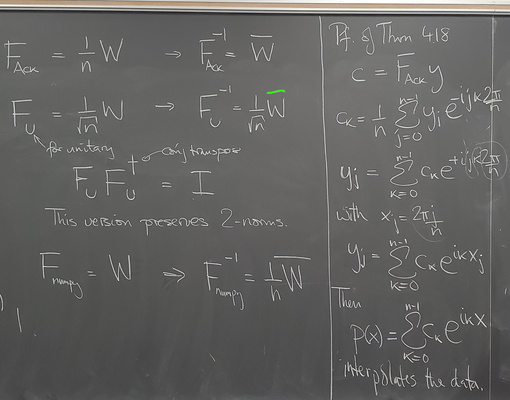 F_Ack = 1/n W → F_Ack^-1 = W̅
F_U = 1/√n W → F_U^-1 = 1/√n W̅
for unitary
conj transpose
F_U F_U^† = I
This version preserves 2-norms.
F_numpy = W ⇒ F_numpy^-1 = 1/n W̅
Pf. of Thm 4.18
c = F_Ack y
c_k = 1/n ∑_{j=0}^{n-1} y_j e^{-ijk 2π/n}
y_j = ∑_{k=0}^{n-1} c_k e^{+ijk 2π/n}
with x_j = 2πj/n
y_j = ∑_{k=0}^{n-1} c_k e^{ikx_j}
Then
p(x) = ∑_{k=0}^{n-1} c_k e^{ikx}
interpolates the data.